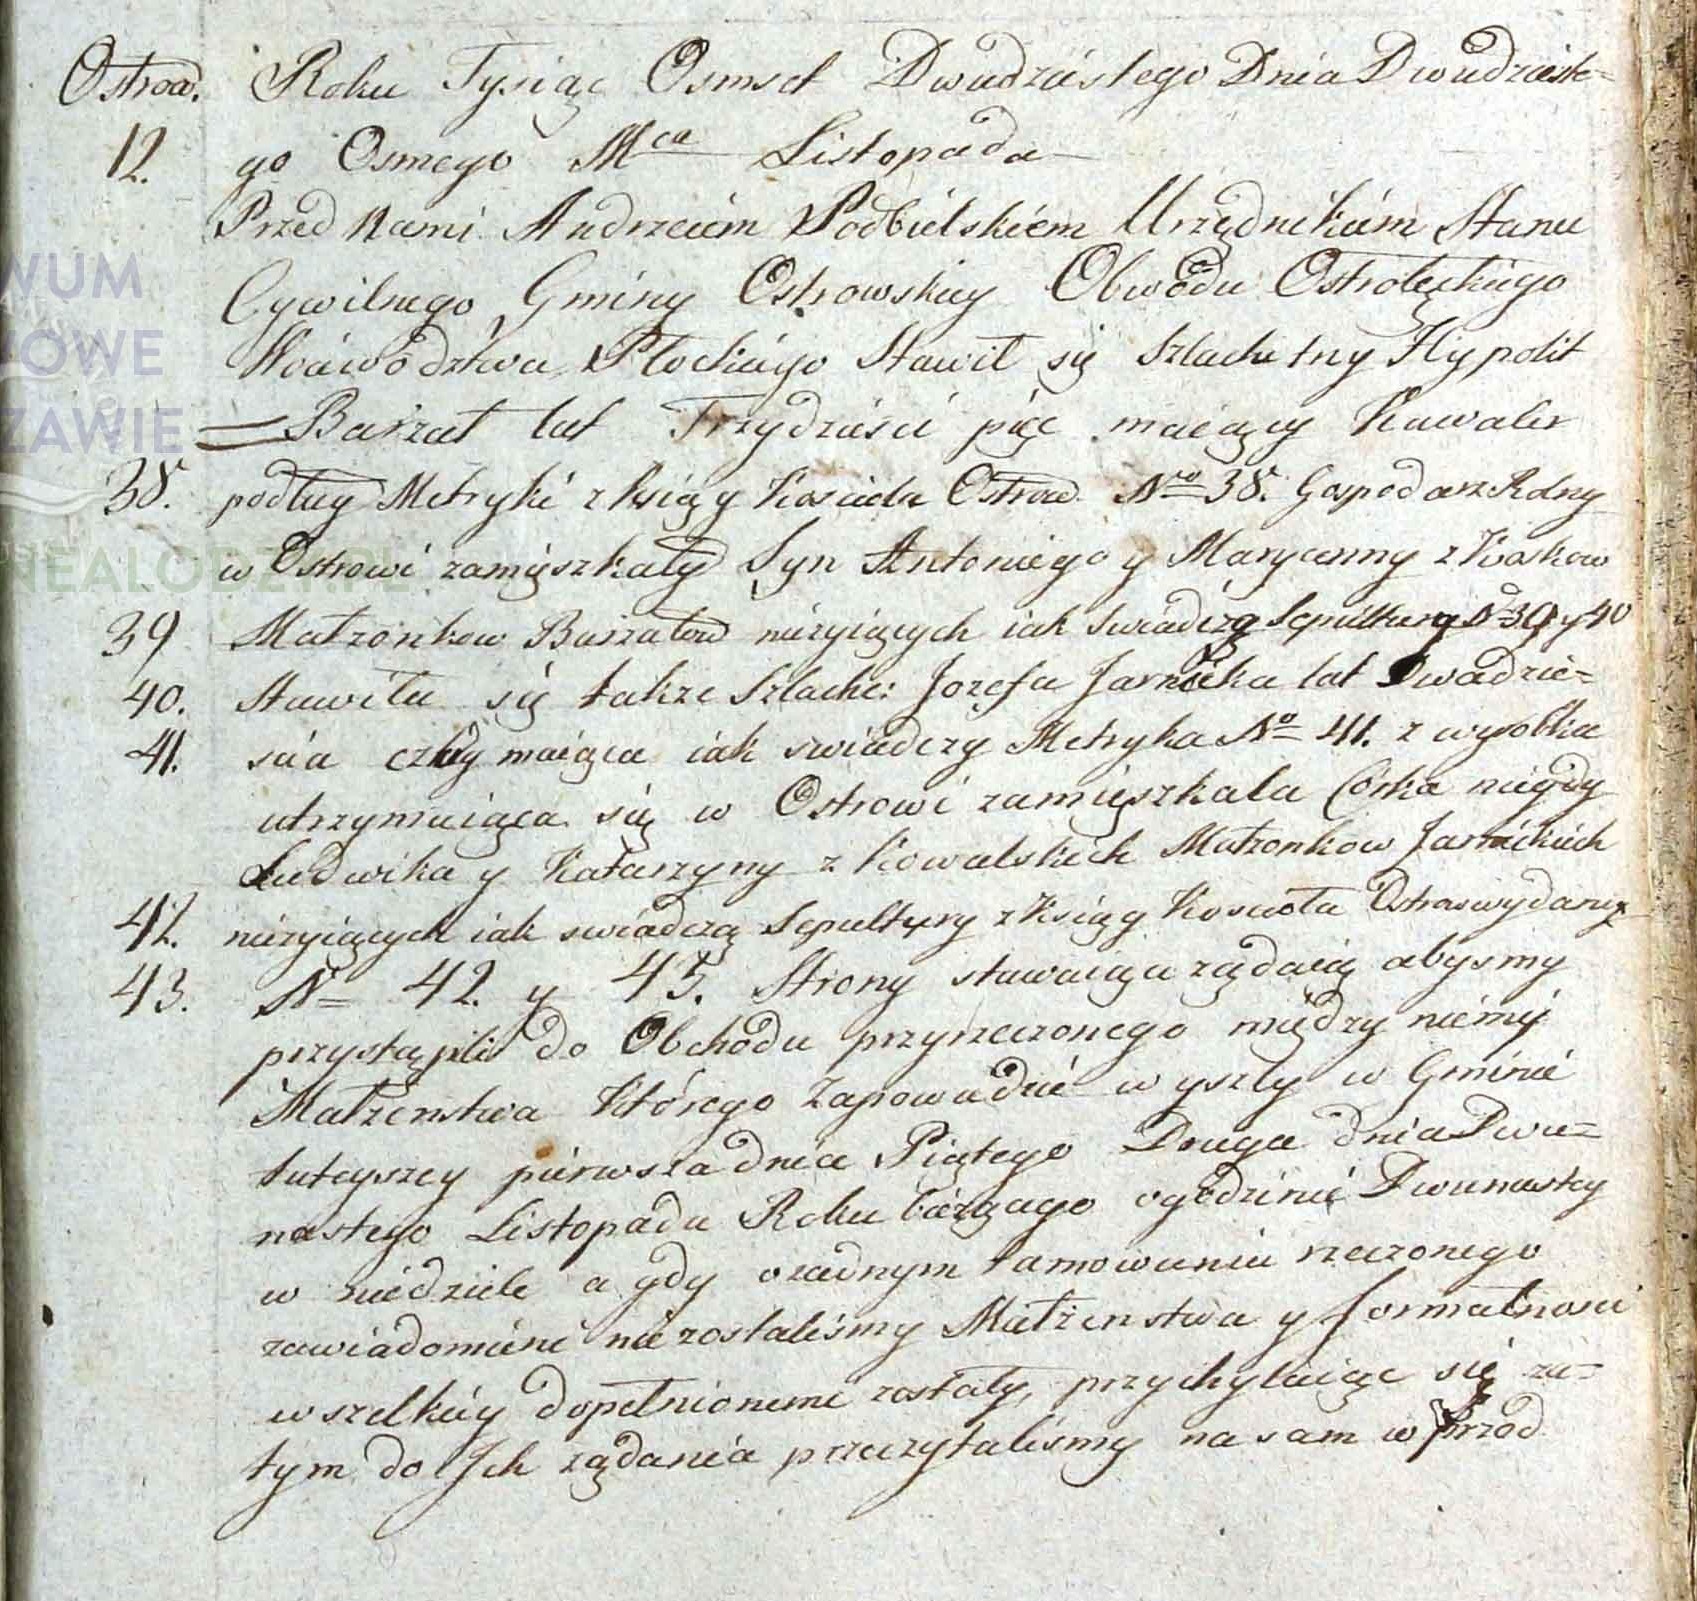 Ostrow. Roku Tysiąc Osmset Dwudziestego Dnia Dwudzieste-
12. go Osmego Mca Listopada
Przed Nami Andrzeiem Podbielskiem Urzędnikiem Stanu
Cywilnego Gminy Ostrowskiey Obwodu Ostrołęckiego
Woiewodztwa Płockiego Stawił się Szlachetny Hypolit
Barzał lat Trzydzieści pięc maiący Kawaler
38. podług Metryki z Xsięgy Koscioła Ostrow No 38. Gospodarz Rolny
w Ostrowi zamięszkały Syn Antoniego y Maryanny z
39 Małzonkow Barzałow nieżyiących iak swiadczą Sepultury No 39 y 40
40. Stawiła się także Szlache: Jozefa Jarnicka lat Dwadzie-
41. scia cztery maiąca iak swiadczy Metryka No 41. z wyrobku
utrzymuiąca się w Ostrowi zamięszkała Corka niegdy
Ludwika y Katarzyny z Kowalskich Małzonkow Jarnickich
42. nieżyiących iak swiadczą Sepultury z Xsięgy Koscioła Ostrow wydane
43. No 42. y 43. Strony stawaiące rządaią abysmy
przystąpili do Obchodu przyrzeczonego między niemi
Małżenstwa Którego Zapowiedzie wyszły w Gminie
tuteyszey pierwsza dnia Piątego Druga dnia Dwu-
nastego Listopada Roku bieżącego o godzinie Dwunastey
w niedziele a gdy o żadnym tamowaniu rzeczonego
zawiadomieni nie zostaliśmy Małżenstwa y formalnosci
wszelkiey dopełnionemi zostały, przychylaiąc się za-
tym do Ich rządania przeczytalismy na sam w przod
WUM
OWE
ZAWIE
NEALODZY.PL